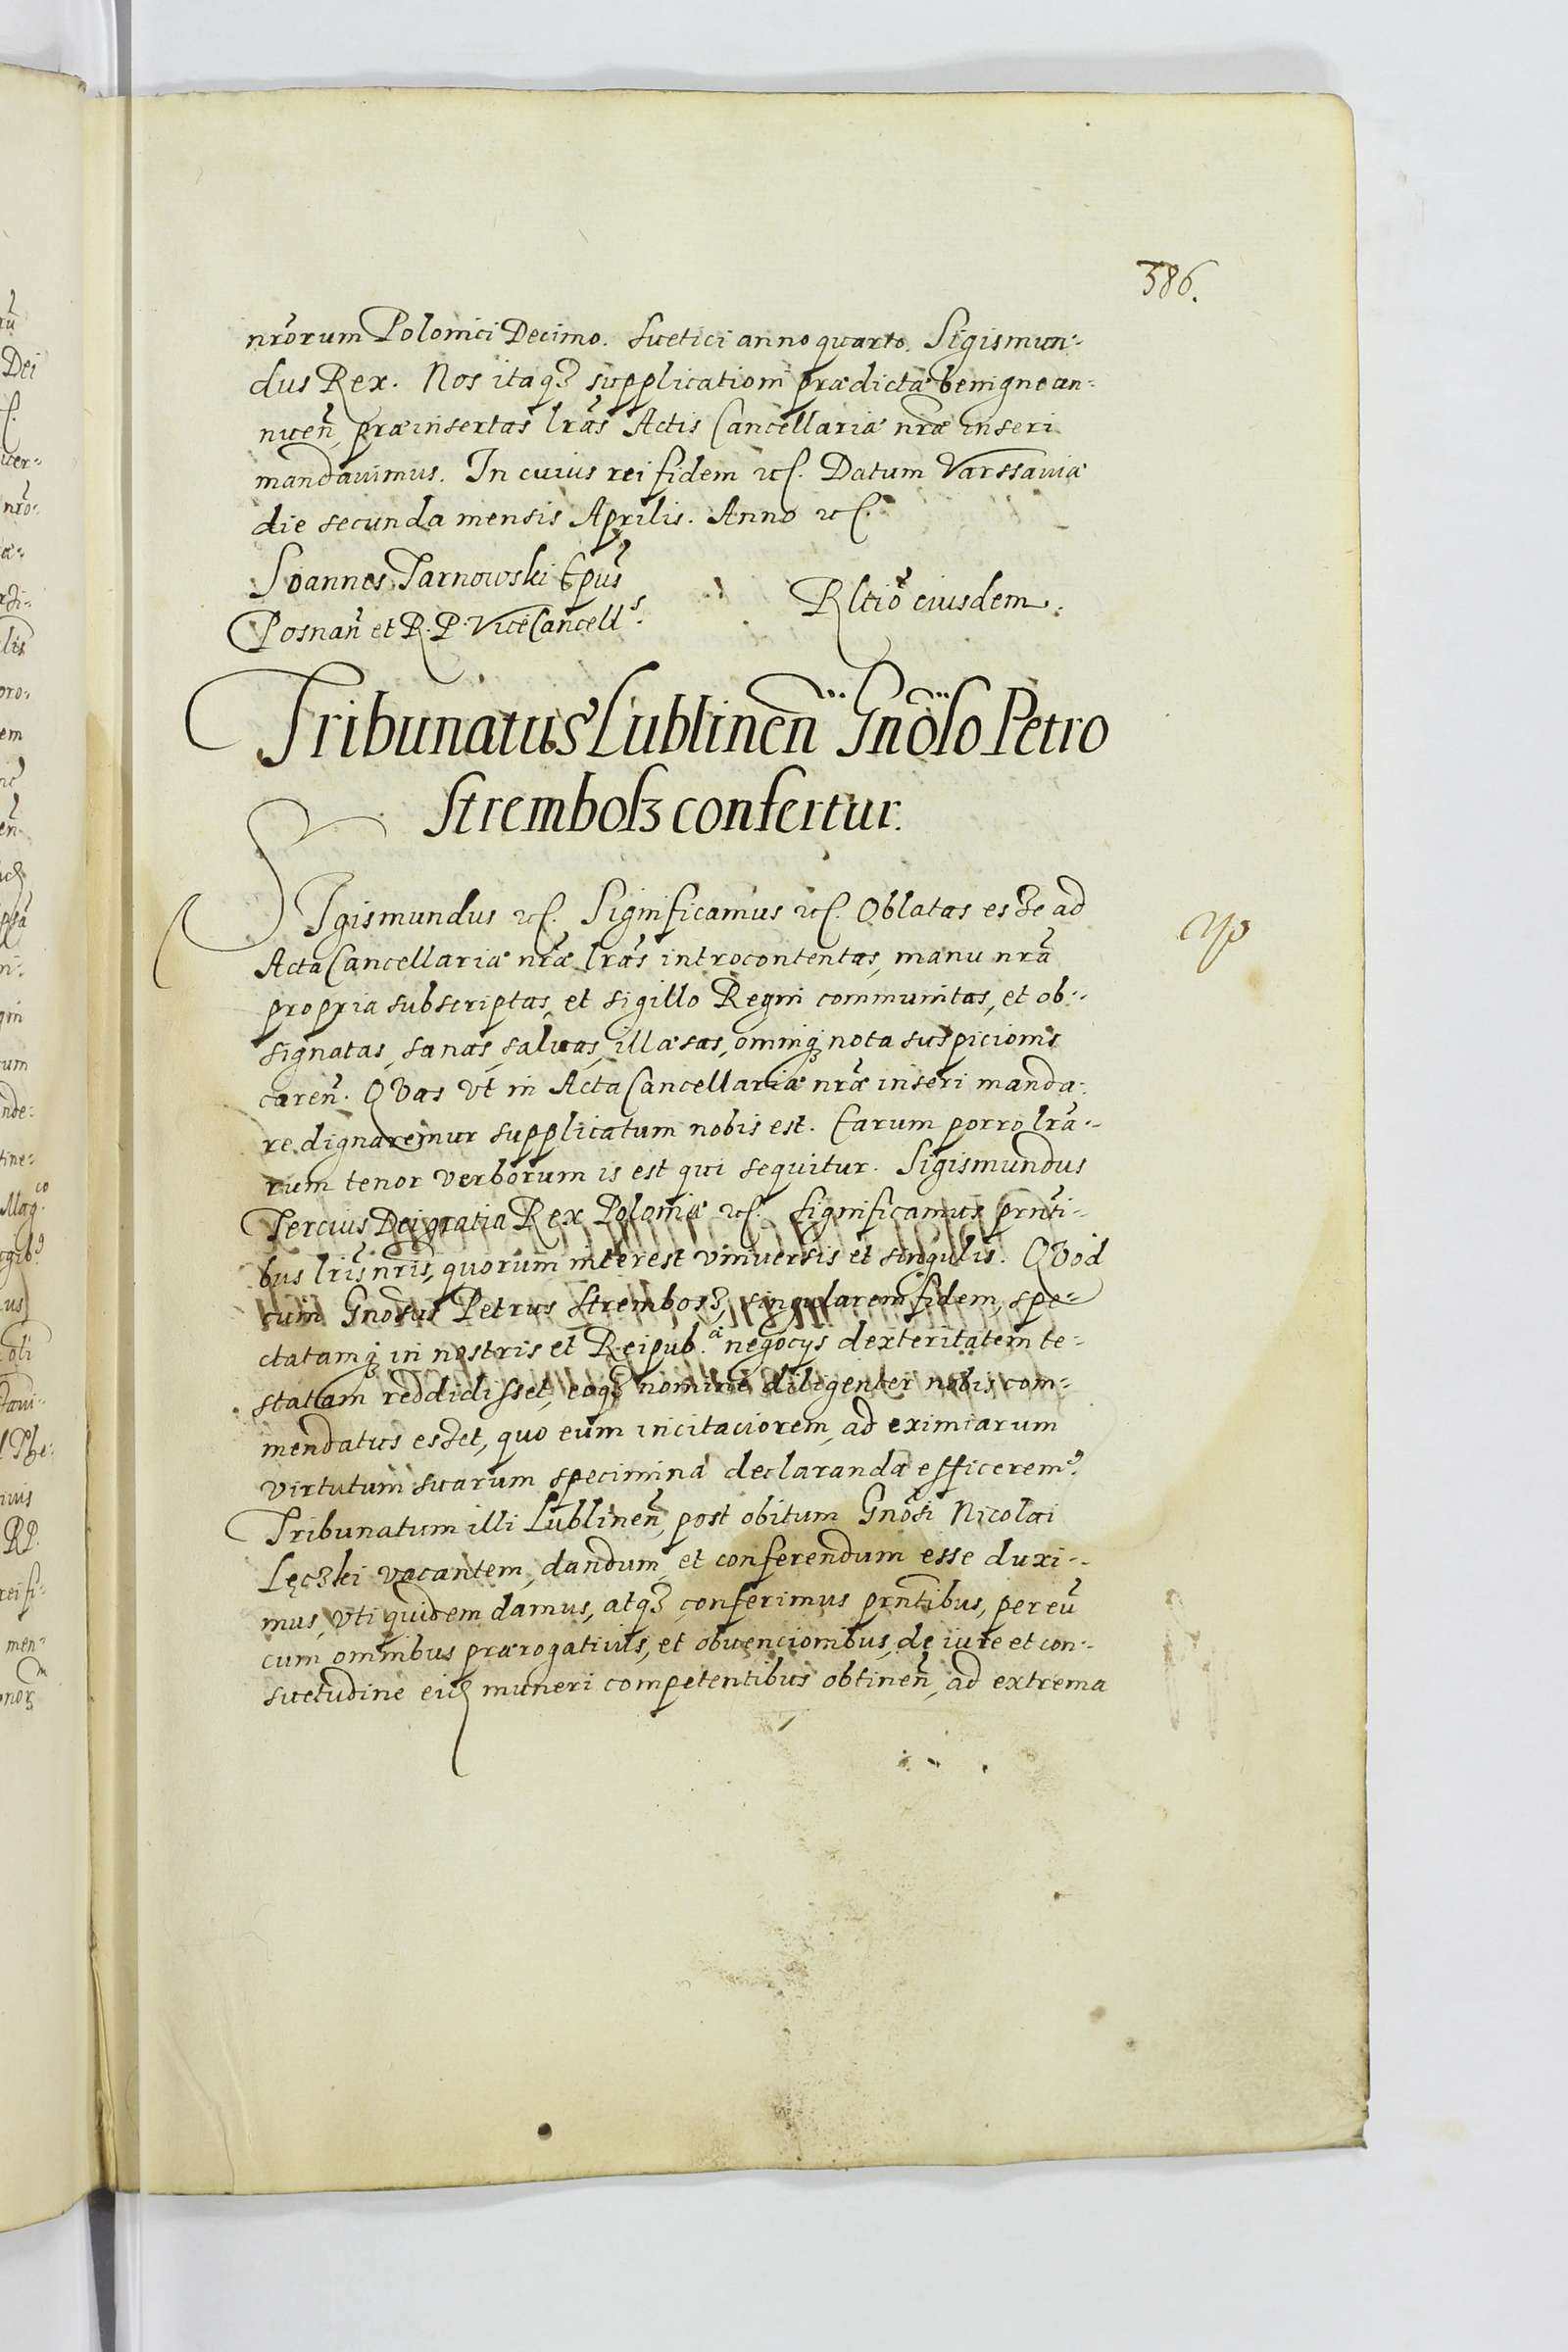 386.
nr̃orum Polonici Decimo. Suetici anno quarto. Sigismun-
dus Rex. Nos itaq3 supplicationi prædictæ benigne an-
nuen̄, præinsertas lrãs Actis Cancellariæ nrӕ̃ inseri
mandauimus. In cuius rei fidem etc. Datum Varssauiæ
die secunda mensis Aprilis. Anno etc.
Joannes Tarnowski Epũs
Posnan̄ et R. P. ViceCancellˢ.
Rltiõ eiusdem.
Tribunatus Lublinen̄ Gnõso Petro
Strembosz confertur.
SIgismundus etc. Significamus etc. Oblatas esse ad
Acta Cancellariæ nrӕ̃ lrãs introcontentas, manu nrã
propria subscriptas, et sigillo Regni communitas, et ob-
signatas, sanas, saluas, illæsas, omniq3 nota suspicionis
caren̄. QVas vt in Acta Cancellariæ nrӕ̃ inseri manda-
re dignaremur supplicatum nobis est. Earum porro lrã-
rum tenor verborum is est qui sequitur. Sigismundus
Tercius Dei gratia Rex Poloniæ etc. Significamus prñti-
bus lrĩs nrĩs, quorum interest vniuersis et singulis. QVod
cum Gnosus Petrus Strembosz, singularem fidem, spe-
ctatamq3 in nostris et Reipub.ᵃ negocys dexteritatem te-
statam reddidisset, eoq3 nomine diligenter nobis com-
mendatus esset, quo eum incitaciorem, ad eximiarum
virtutum suarum specimina declaranda efficerem9.
Tribunatum illi Lublinen̄, post obitum Gnõsi Nicolai
Lęczki vacantem, dandum, et conferendum esse duxi-
mus, vti quidem damus, atq3 conferimus prñtibus, per eũ
cum omnibus prærogatiuis, et obuencionibus, de iure et con-
suetudine eid muneri competentibus obtinen̄, ad extrema